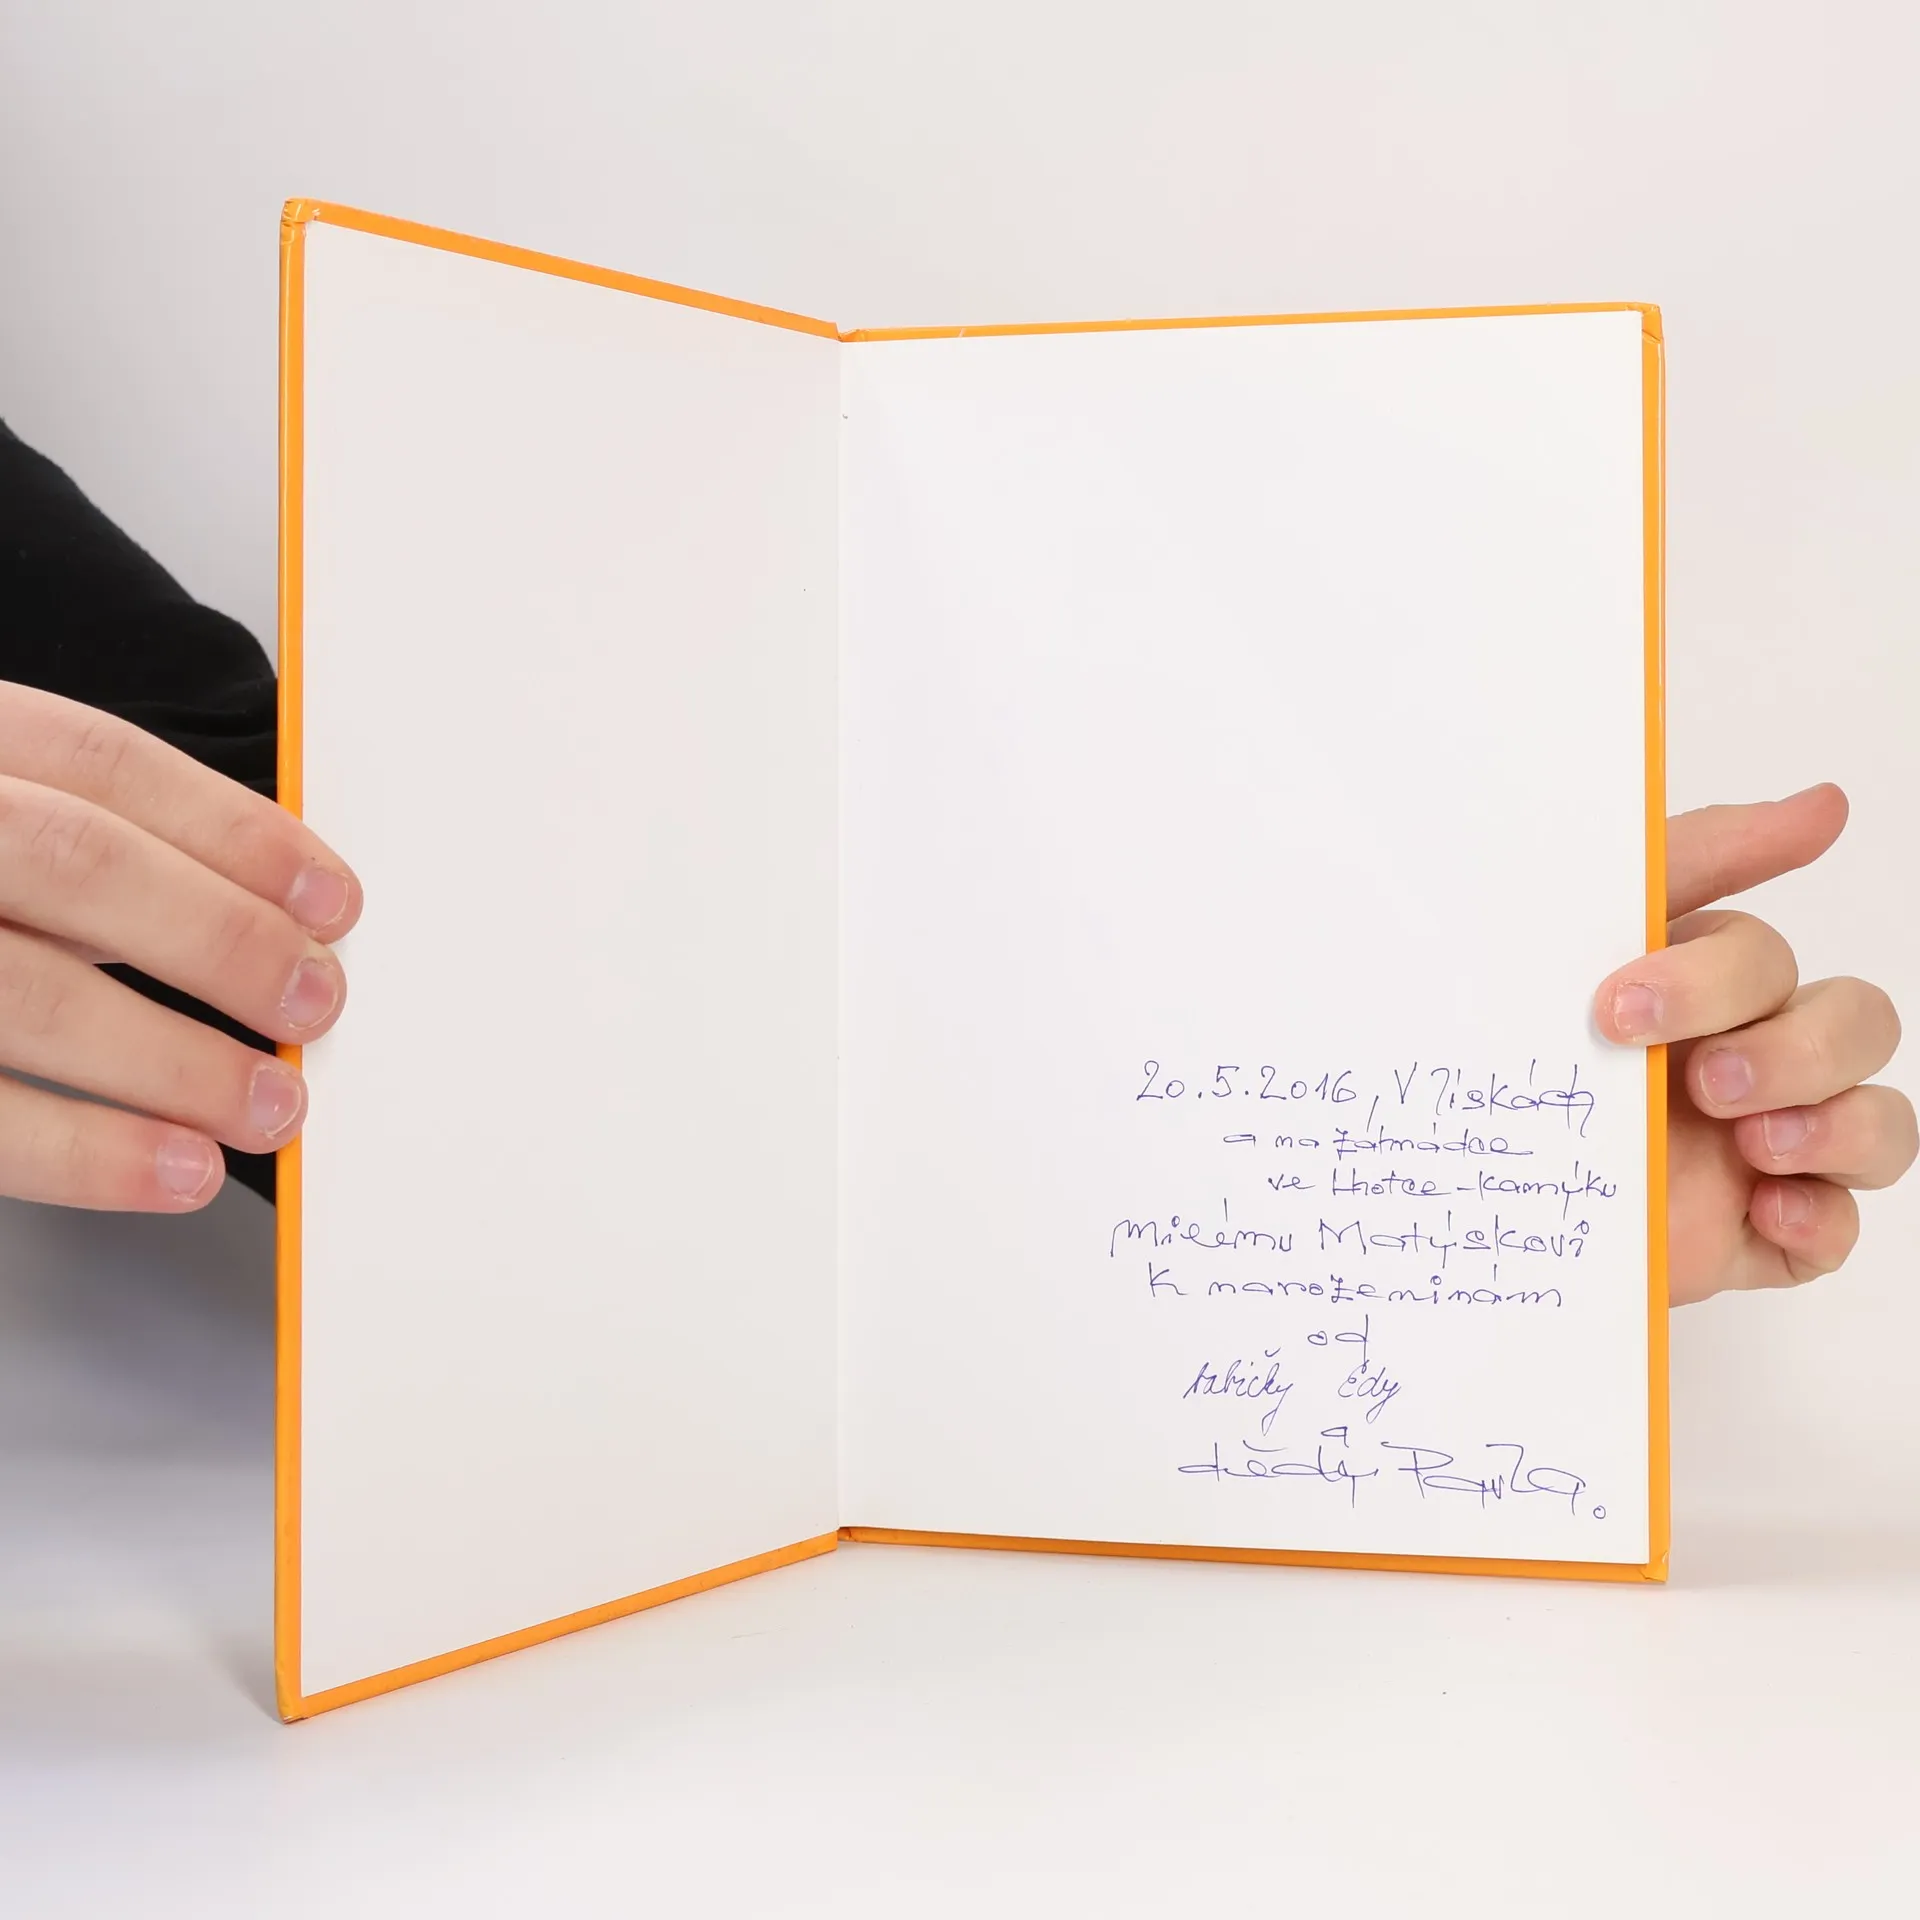 20.5.2016, V Jiskách
a na Zahrádce
ve Lhotce - Kamýku
Milému Matýskovi
K narozeninám
od
babičky Edy
a
dědy Pavla.